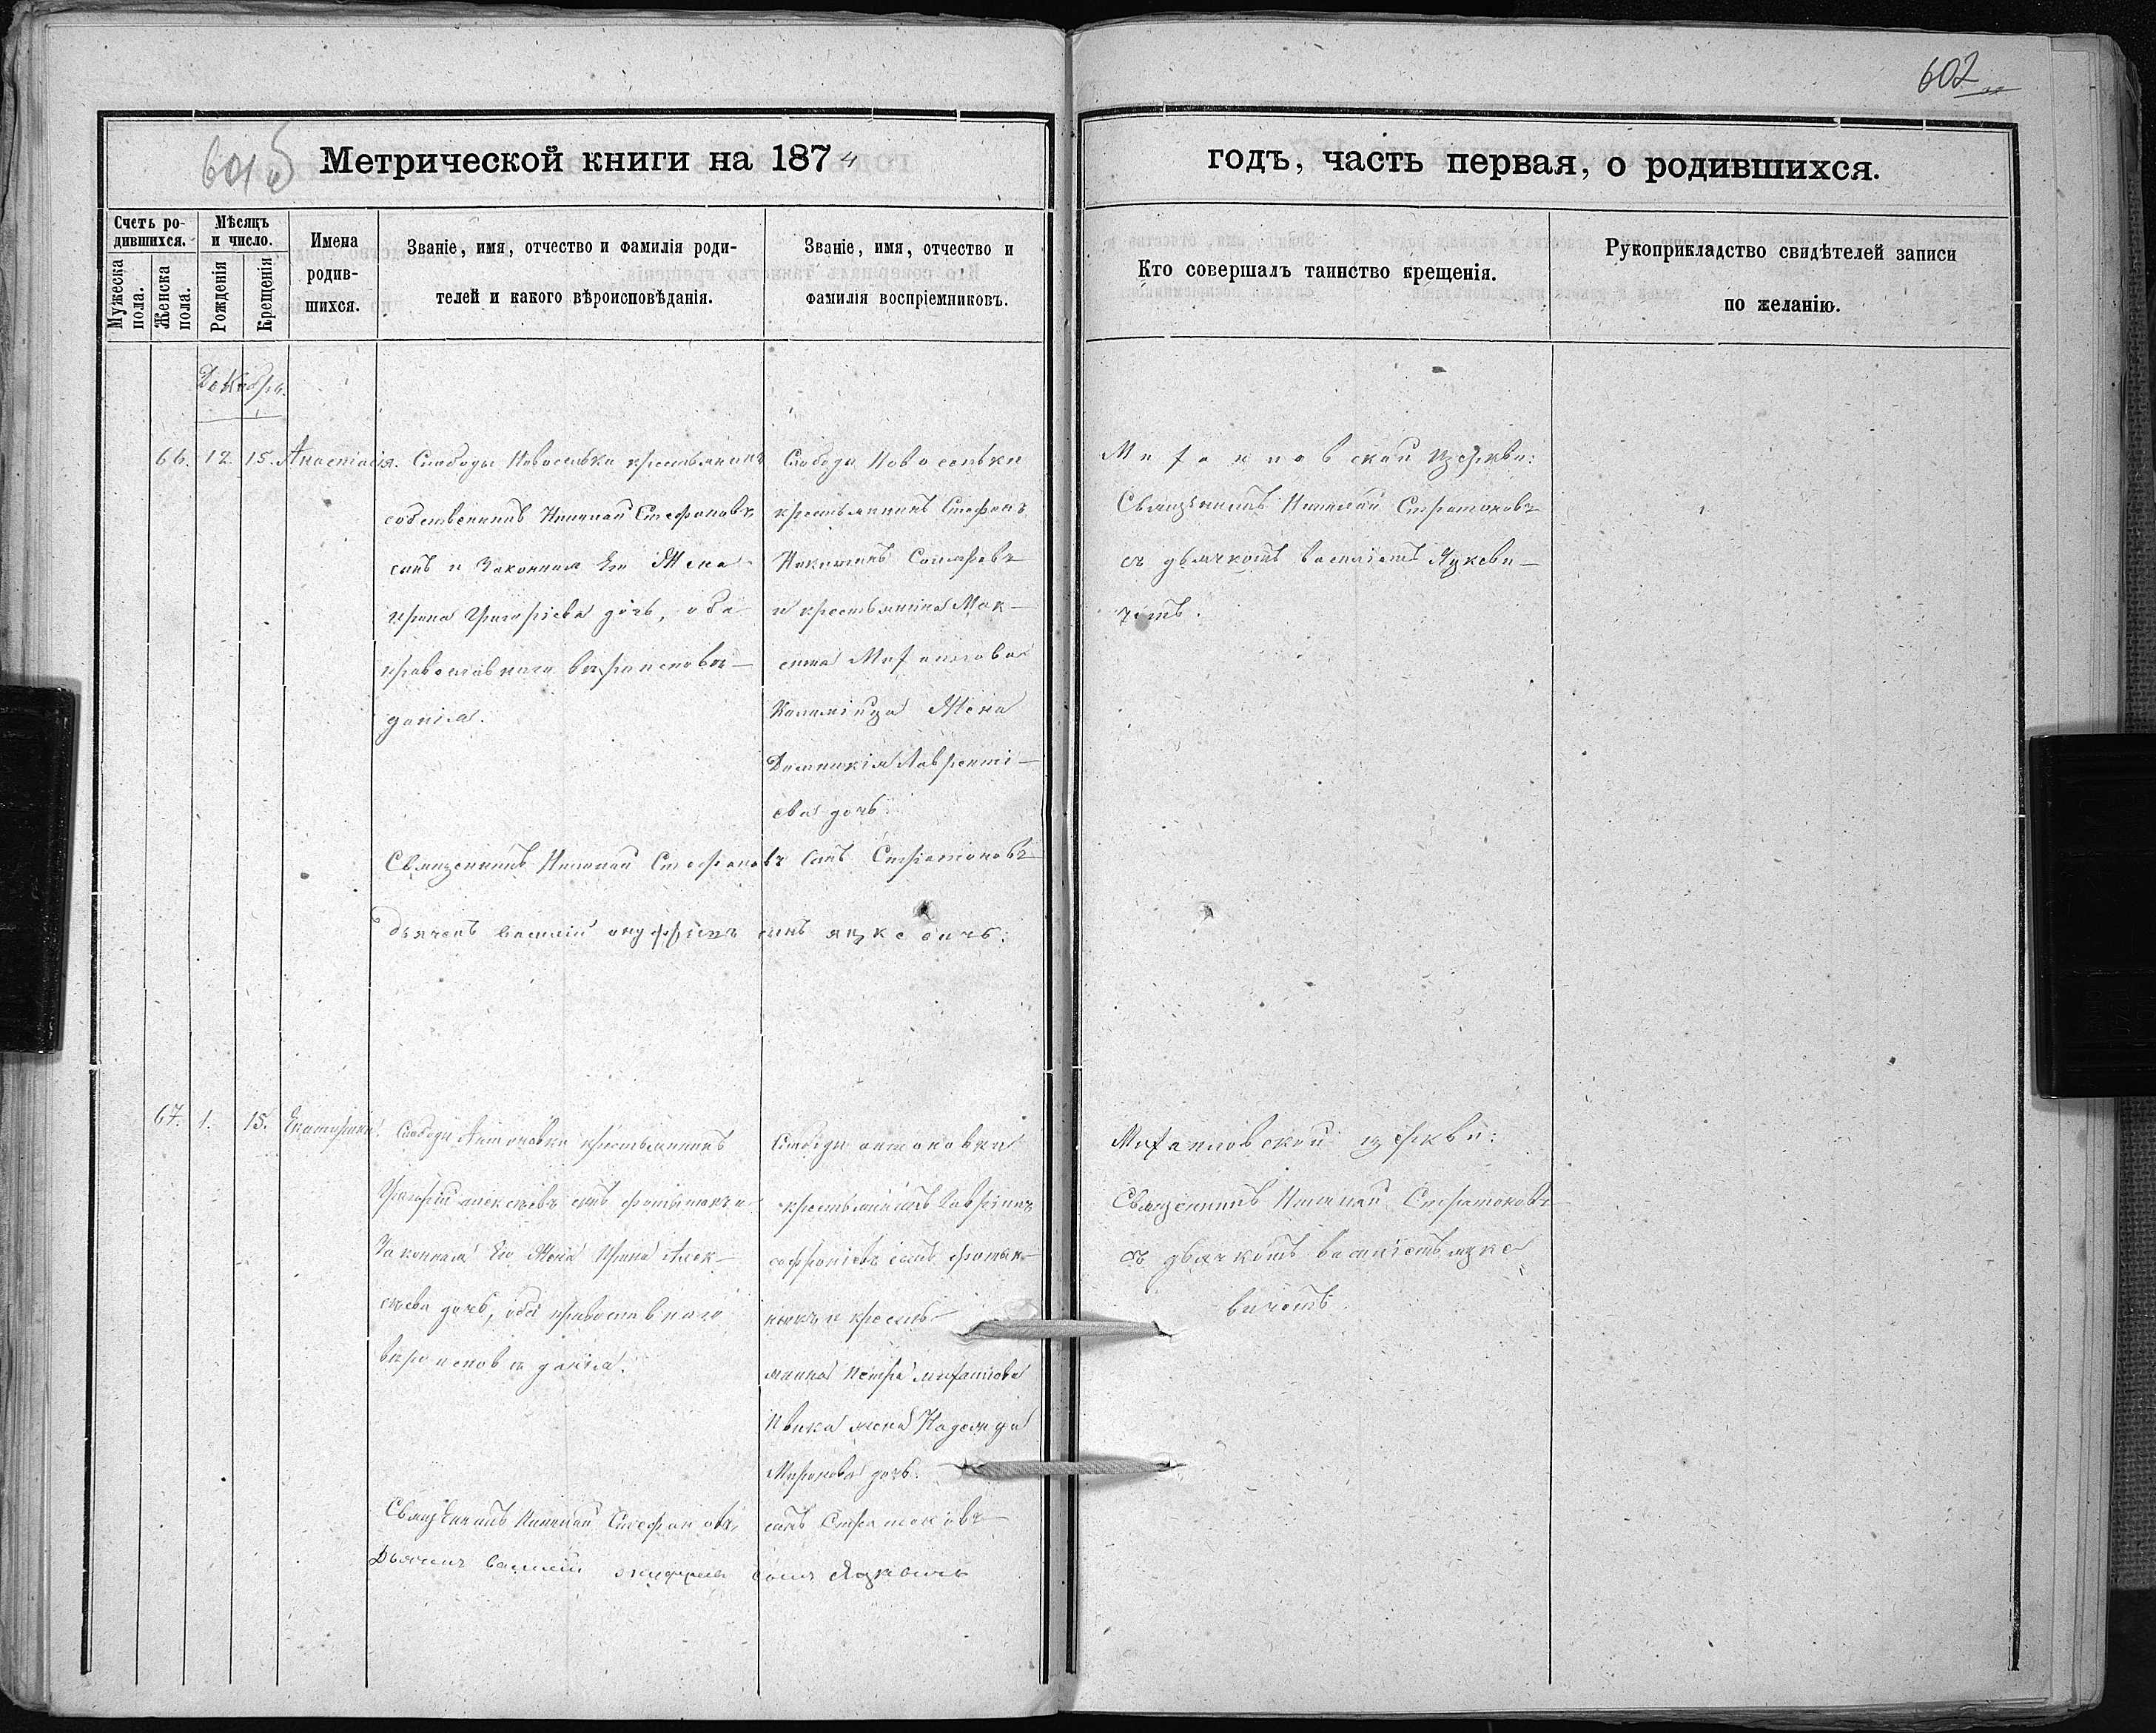 602
601 б
Метрической книги на 1874
годъ, часть первая, о родившихся.
Счетъ ро-
дившихся.
Мужеска пола.
Женска пола.
Мѣсяцъ
и число.
Рожденія
Крещенія
Имена
родив-
шихся.
Званіе, имя, отчество и фамилія роди-
телей и какого вѣроисповѣданія.
Званіе, имя, отчество и
фамилія воспріемниковъ.
Кто совершалъ таинство крещенія.
Рукоприкладство свидѣтелей записи
по желанію.
Декабря.
66. 12. 15. Анастасія.
Слободы Новоселки крестьянинъ
собственникъ Николай Стефановъ
сынъ и Законная Его Жена
Ирина Григоріева дочь, оба
православнаго вѣроисповѣ-
данія.
Слободы Новоселки
крестьянинъ Стефанъ
и крестьянина Мак-
сима Михаилова
Жена
Домникія Лавренті-
ева дочь.
Михаиловской церкви:
Священникъ Николай Стратоновъ
съ дьячкомъ Василіемъ Яцкеви-
чемъ.
Священникъ Николай Стефановъ сынъ Стратоновъ
Дьячекъ Василій Онуффріевъ сынъ Яцкевичъ.
67. 1. 15. Екатерина.
Слободы Антоновки крестьянинъ
Григорій Алексѣевъ сынъ
Законная Его Жена Ирина Алек-
сѣева дочь, оба православнаго
вѣроисповѣданія.
Слободы Антоновки
крестьянинъ
софроніевъ сынъ
и кресть-
янина Петра Михаилова
жена Надежда
Миронова дочь.
Михаиловской церкви:
Священникъ Николай Стратоновъ
съ дьячкомъ Василіемъ Яцке-
вичемъ
Священникъ Николай Стефановъ сынъ Стратоновъ
Дьячекъ Василій Онуффріевъ сынъ Яцкевичъ